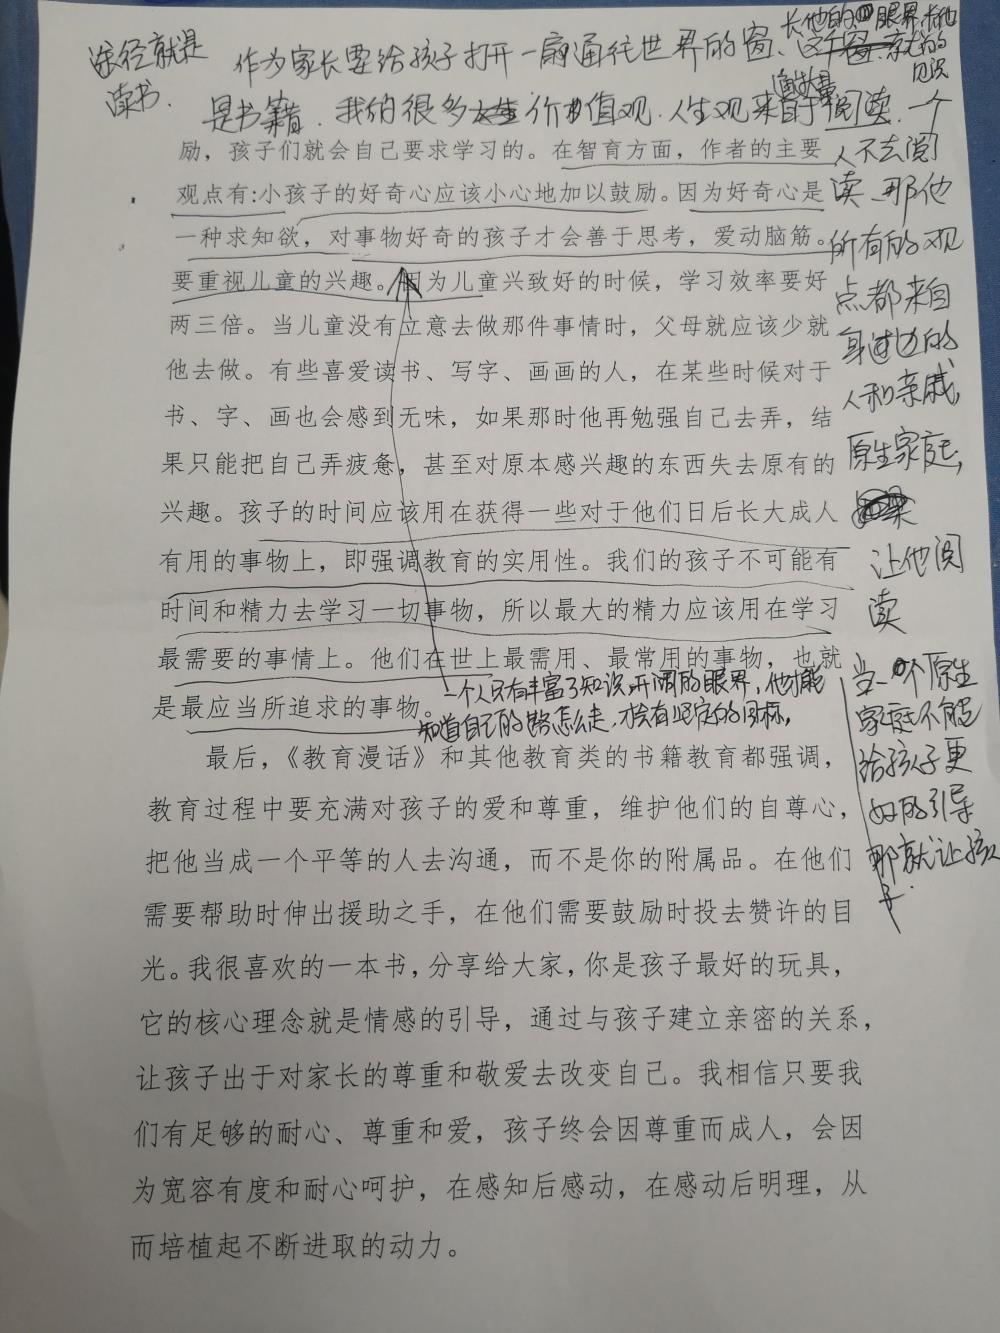 途径就是
读书.
长他的眼界,长他
的
见识
作为家长要给孩子打开一扇通往世界的窗、这个窗就
是书籍.我们很多价值观.人生观来自于阅读.一个
励，孩子们就会自己要求学习的。在智育方面，作者的主要
观点有:小孩子的好奇心应该小心地加以鼓励。因为好奇心是
一种求知欲，对事物好奇的孩子才会善于思考，爱动脑筋。
要重视儿童的兴趣。因为儿童兴致好的时候，学习效率要好
两三倍。当儿童没有立意去做那件事情时，父母就应该少就
他去做。有些喜爱读书、写字、画画的人，在某些时候对于
书、字、画也会感到无味，如果那时他再勉强自己去弄，结
果只能把自己弄疲惫，甚至对原本感兴趣的东西失去原有的
兴趣。孩子的时间应该用在获得一些对于他们日后长大成人
有用的事物上，即强调教育的实用性。我们的孩子不可能有
时间和精力去学习一切事物，所以最大的精力应该用在学习
最需要的事情上。他们在世上最需用、最常用的事物，也就
是最应当所追求的事物。
一个人只有丰富了知识,开阔的眼界,他才能
知道自己的路怎么走.才会有坚定的目标,
最后，《教育漫话》和其他教育类的书籍教育都强调，
教育过程中要充满对孩子的爱和尊重，维护他们的自尊心，
把他当成一个平等的人去沟通，而不是你的附属品。在他们
需要帮助时伸出援助之手，在他们需要鼓励时投去赞许的目
光。我很喜欢的一本书，分享给大家，你是孩子最好的玩具，
它的核心理念就是情感的引导，通过与孩子建立亲密的关系，
让孩子出于对家长的尊重和敬爱去改变自己。我相信只要我
们有足够的耐心、尊重和爱，孩子终会因尊重而成人，会因
为宽容有度和耐心呵护，在感知后感动，在感动后明理，从
而培植起不断进取的动力。
人不去阅
读、那他
所有的观
点都来自
身边的
人和亲戚,
原生家庭,
让他阅
读
当一个原生
家庭不能
给孩子更
好的引导
那就让孩
子.